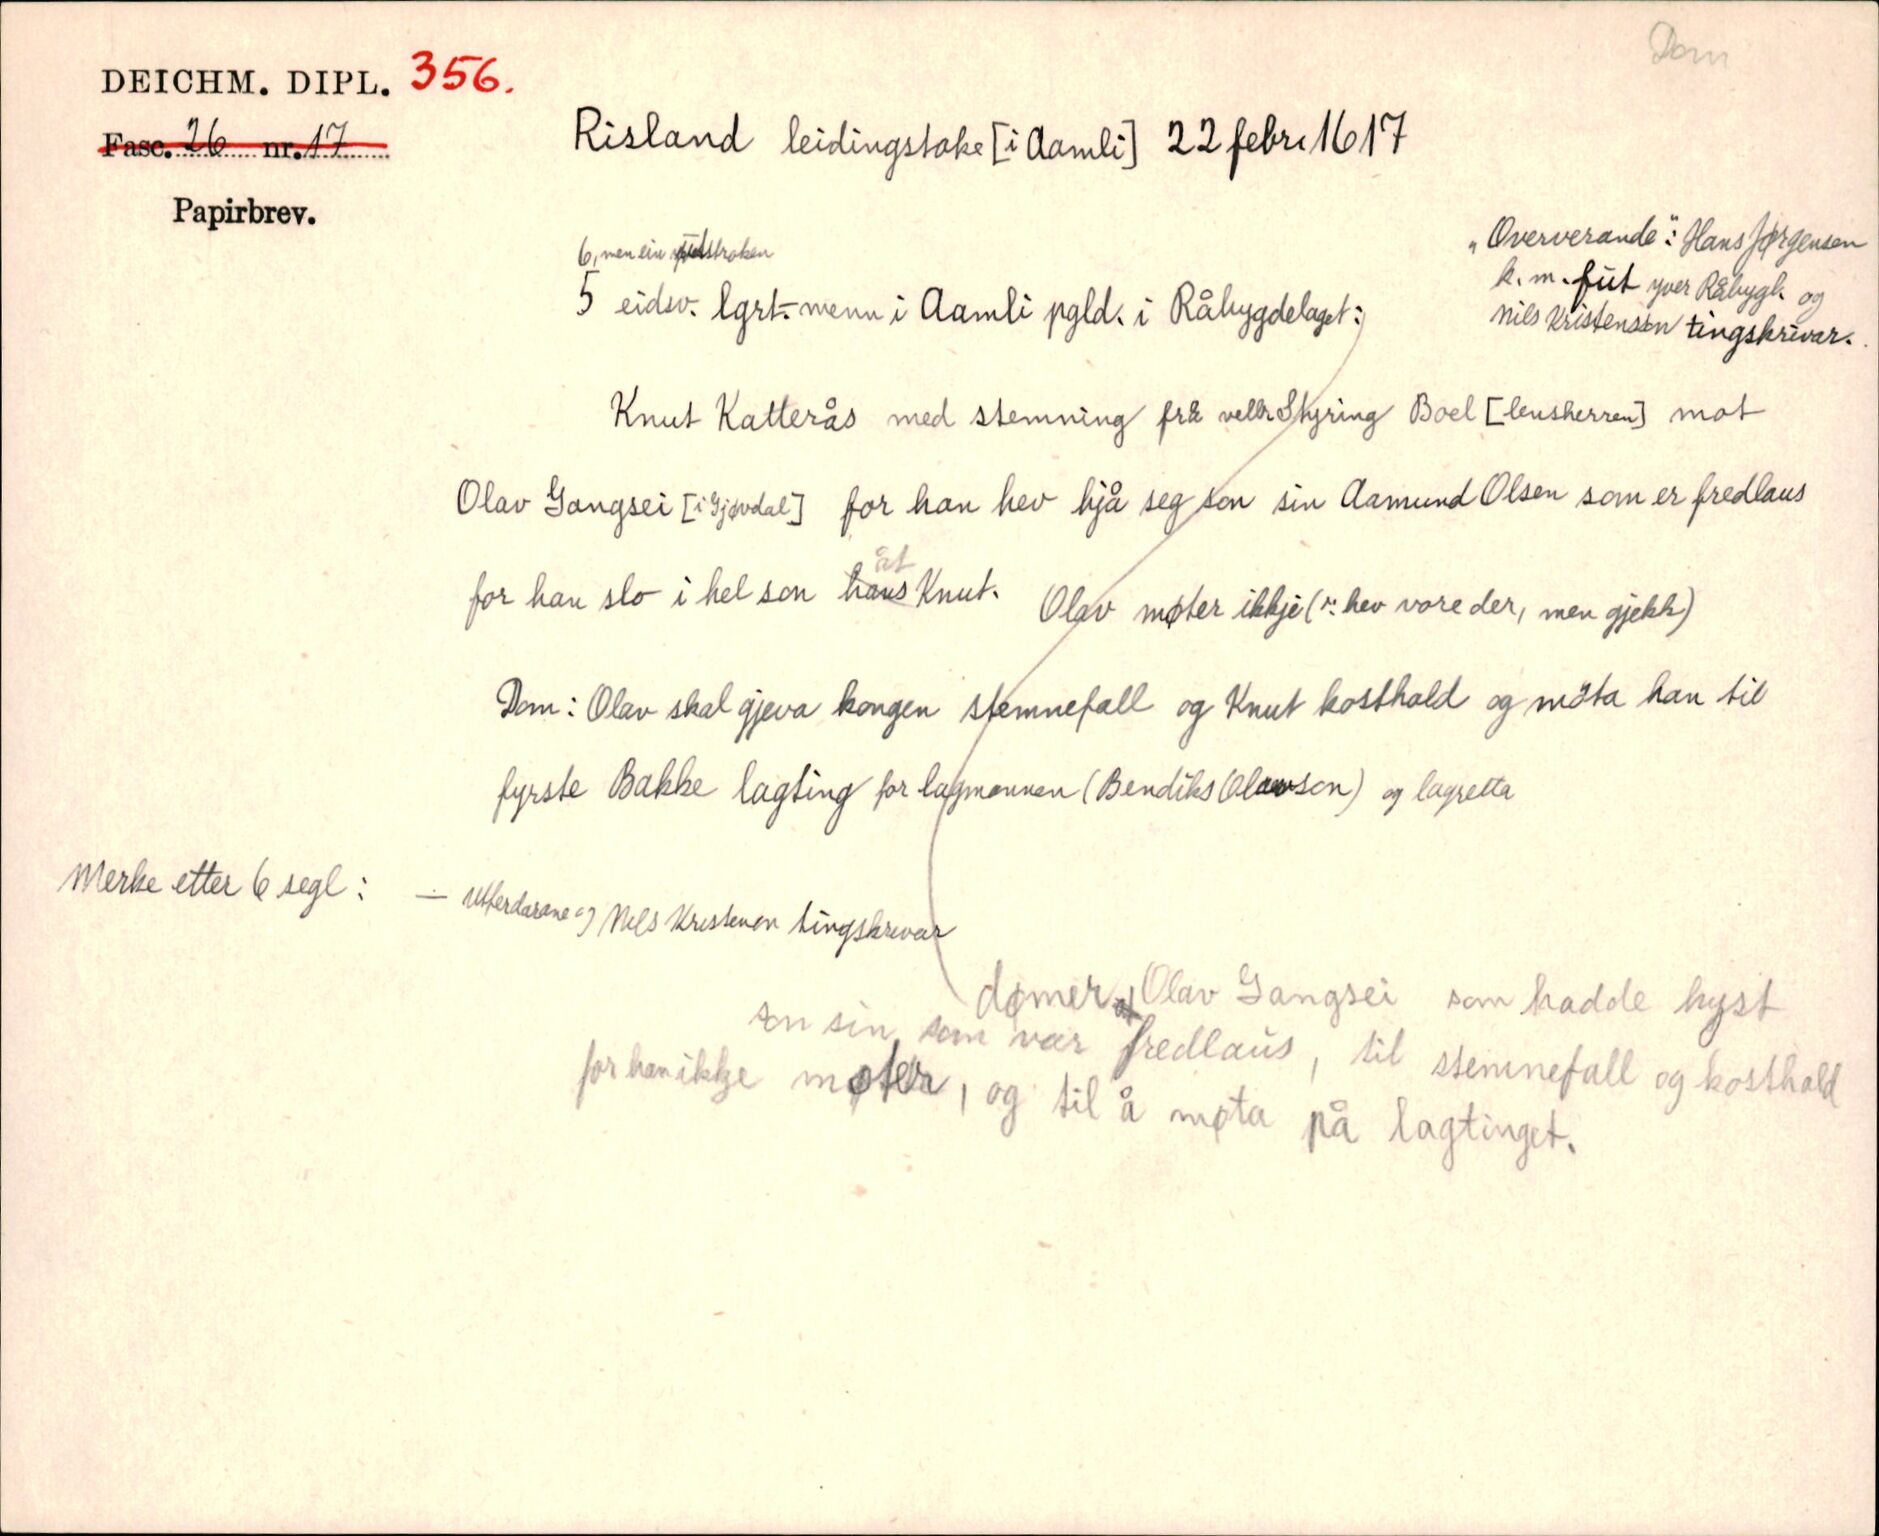 Dom
DEICHM. DIPL. 356.
Fasc. 26 nr. 17
Papirbrev.
Risland leidingstoke [i Aamli] 22 febr. 1617
"Ververande": Hans Jørgensen
k. m. fut yver Råbygl. og
Nils Kristensen tingskrivar.
6, men ein utstroken
5 eidsv. lgrt.-menn i Aamli pgld. i Råbygdelaget:
Knut Katterås med stemning frå velb. Styring Boel [lensherren] mot
Olav Gangsei [i Gjøvdal] for han hev hjå seg son sin Aamund Olsen som er fredlaus
for han slo i hel son hans åt Knut. Olav møter ikkje (ɔ: hev vore der, men gjekk)
Dom: Olav skal gjeva kongen stemnefall og Knut kosthald og möta han til
fyrste Bakke lagting for lagmannen (Bendiks Olavson) og lagretta
Merke etter 6 segl: — Utferdarane og Nils Kristensen tingskrivar
dømer Olav Gangsei som hadde hyst
son sin, som var fredlaus, til stemnefall og kosthald
for han ikkje møter, og til å møta på lagtinget.